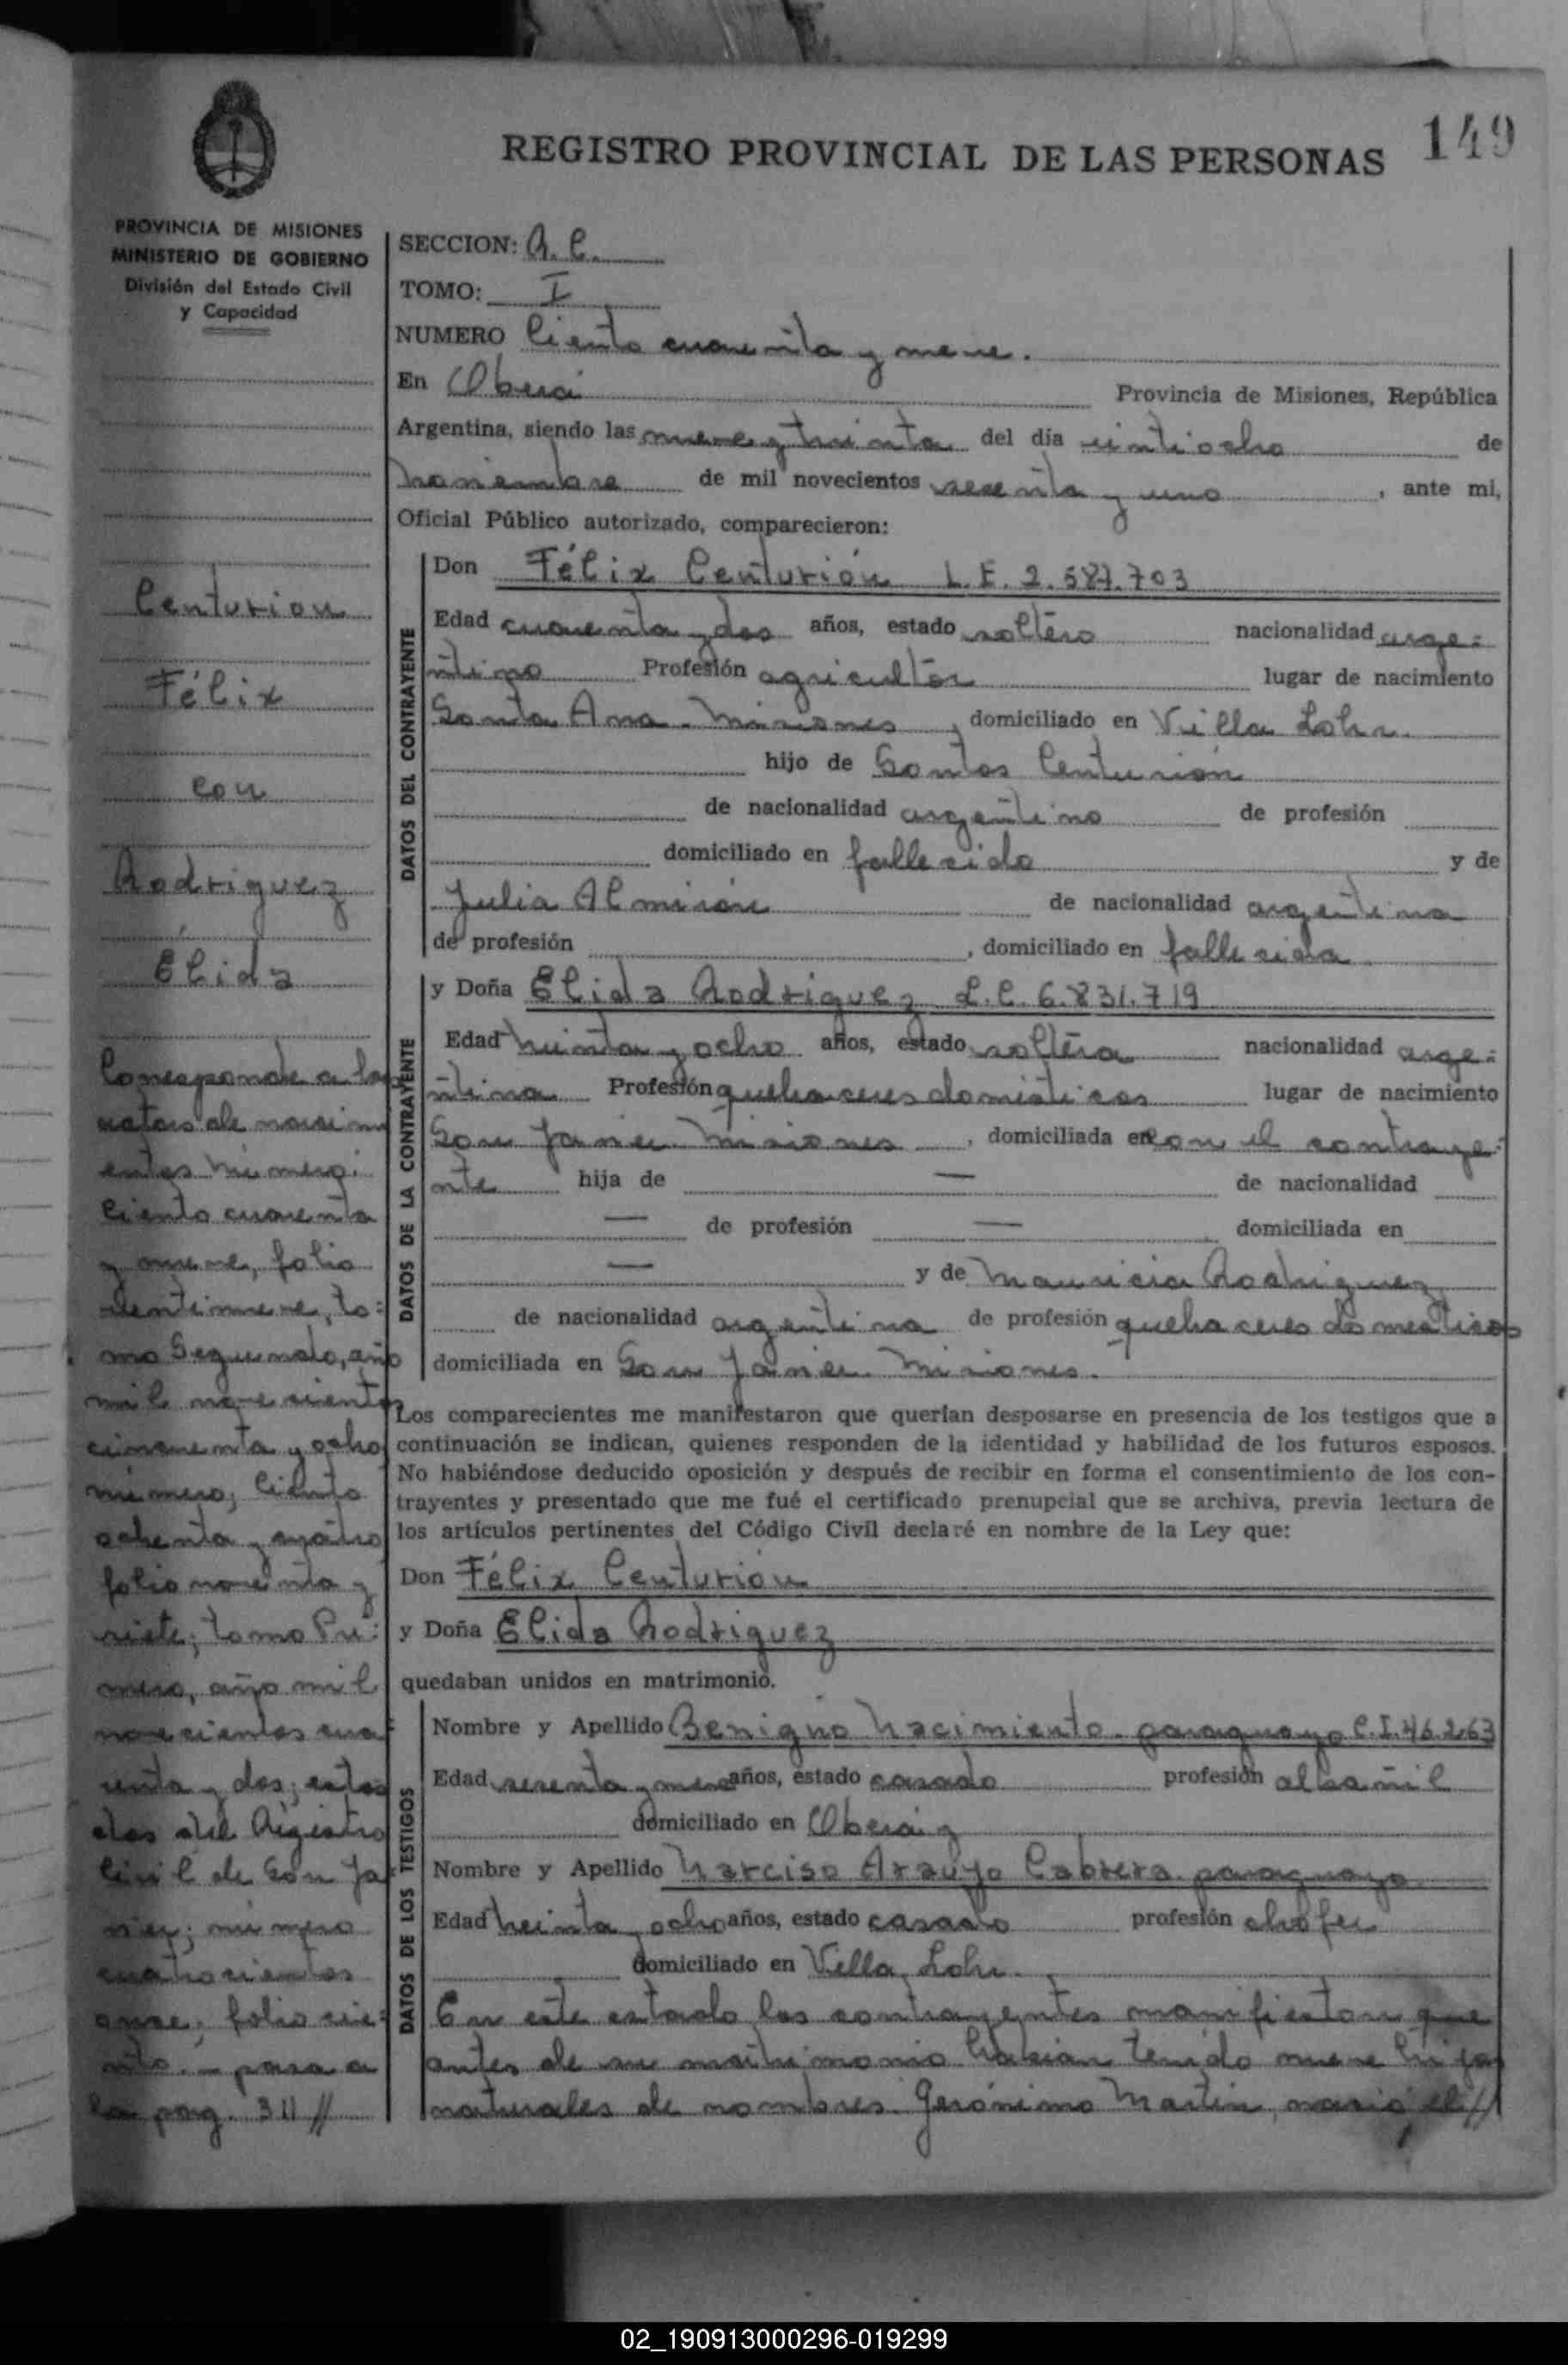 149
REGISTRO PROVINCIAL DE LAS PERSONAS
PROVINCIA DE MISIONES
MINISTERIO DE GOBIERNO
División del Estado Civil
y Capacidad
Centurion
Félix
con
Rodriguez
Élida
Corresponde a las
actas de nacimi
entos número:
Ciento cuarenta
y nueve, folio
to=
mo Segundo, año
mil novecientos
cincuenta y ocho
número; Ciento
ochenta y cuatro
folio noventa y
siete; tomo Pri=
mero, año mil
novecientos cua
renta y dos; estas
dos del Registro
Civil de San Ja
vier; número
cuatrocientos
once; folio cie=
nto.- pasa a
la pag. 311 //
SECCION: A. C.
TOMO: I
NUMERO Ciento cuarenta y nueve.
En Oberá Provincia de Misiones, República
Argentina, siendo las nueve y treinta del día vintiocho de
noviembre de mil novecientos sesenta y uno, ante mi,
Oficial Público autorizado, comparecieron:
DATOS DEL CONTRAYENTE
Don Félix Centurión L.E. 2.587.703
Edad cuarenta y dos años, estado soltero nacionalidad arge=
ntino Profesión agricultor lugar de nacimiento
Santa Ana. Misiones, domiciliado en Villa Lohr.
hijo de Santos Centurión
de nacionalidad argentino de profesión
domiciliado en fallecido y de
Julia Almirón de nacionalidad argentina
de profesión , domiciliado en fallecida
DATOS DE LA CONTRAYENTE
y Doña Elida Rodriguez L.C. 6.831.719
Edad treinta y ocho años, estado soltera nacionalidad arge=
ntina Profesión quehaceres domésticos lugar de nacimiento
San Javier Misiones, domiciliada en con el contraye=
nte hija de — de nacionalidad
— de profesión — domiciliada en
— y de Mauricia Rodriguez
de nacionalidad argentina de profesión quehaceres domésticos
domiciliada en San Javier. Misiones.
Los comparecientes me manifestaron que querían desposarse en presencia de los testigos que a
continuación se indican, quienes responden de la identidad y habilidad de los futuros esposos.
No habiéndose deducido oposición y después de recibir en forma el consentimiento de los con-
trayentes y presentado que me fué el certificado prenupcial que se archiva, previa lectura de
los artículos pertinentes del Código Civil declaré en nombre de la Ley que:
Don Félix Centurión
y Doña Elida Rodriguez
quedaban unidos en matrimonio.
DATOS DE LOS TESTIGOS
Nombre y Apellido Benigno Nacimiento. paraguayo C.I. 46.263
Edad sesenta y nueve años, estado casado profesión albañil
domiciliado en Oberá y
Nombre y Apellido Narciso Araujo Cabrera. paraguayo
Edad treinta y ocho años, estado casado profesión chofer
domiciliado en Villa Lohr.
En este estado los contrayentes manifiestan que
antes de su matrimonio habian tenido nueve hijos
naturales de nombres: Gerónimo Martin, nació el //
02_190913000296-019299